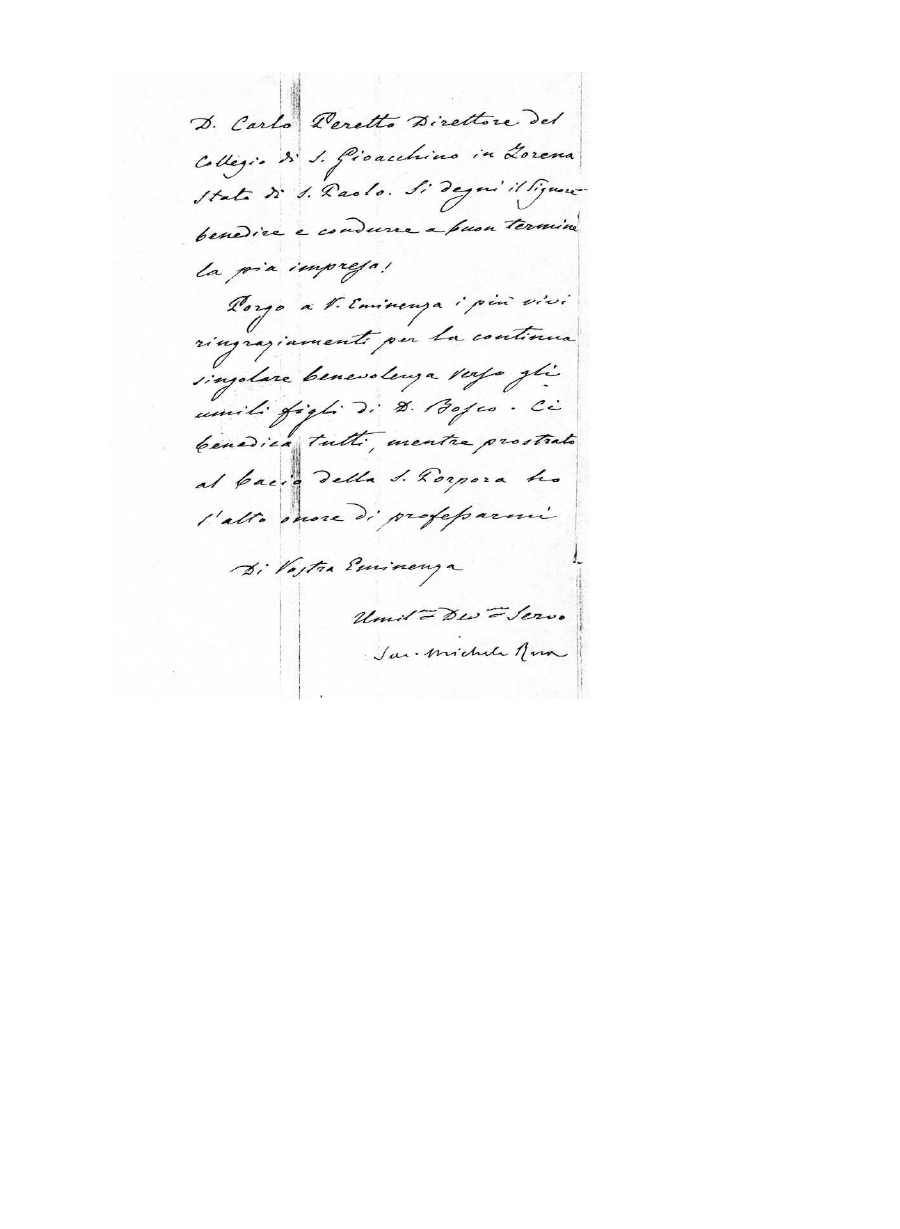 D. Carlo Peretto Direttore del
Collegio di S. Gioacchino in Lorena
Stato di S. Paolo. Si degni il Signore
benedire e condurre a buon termine
la pia impresa!
Porgo a V. Eminenza i più vivi
ringraziamenti per la continua
singolare benevolenza verso gli
umili figli di D. Bosco. Ci
benedica tutti, mentre prostrato
al bacio della S. Porpora ho
l'alto onore di professarmi
Di Vostra Eminenza
Umil.mo Dev.mo Servo
Sac. Michele Rua